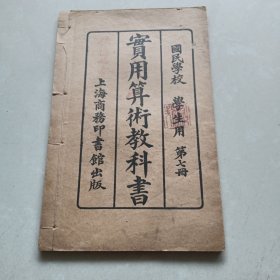 國民學校 學生用 第七冊
實用算術教科書
上海商務印書館出版